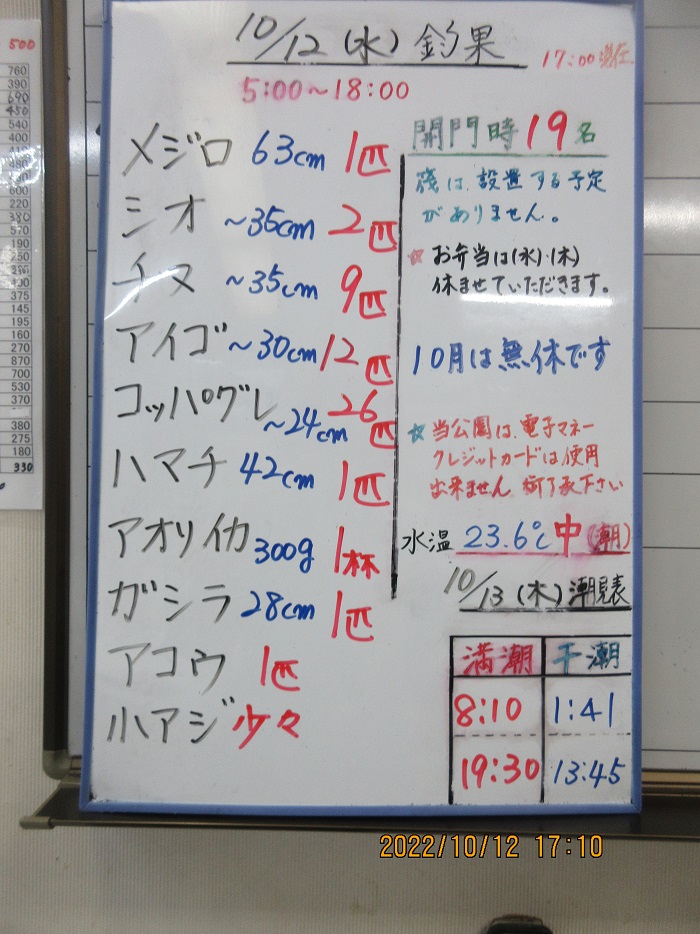 10/12(水)釣果
17:00現在
5:00~18:00
メジロ 63cm 1匹
シオ ~35cm 2匹
チヌ ~35cm 9匹
アイゴ ~30cm 12匹
コッパグレ ~24cm 26匹
ハマチ 42cm 1匹
アオリイカ 300g 1杯
ガシラ 28cm 1匹
アコウ 1匹
小アジ 少々
開門時19名
筏は、設置する予定
がありません。
☆お弁当は(水)・(木)
休ませていただきます。
10月は無休です
☆当公園は、電子マネー
クレジットカードは使用
出来ません 御了承下さい
水温 23.6℃ 中(潮)
10/13(木)潮見表
満潮 干潮
8:10 1:41
19:30 13:45
2022/10/12 17:10
500
760
390
690
450
540
400
600
220
380
570
190
250
400
375
145
195
160
270
870
700
530
370
380
275
180
330